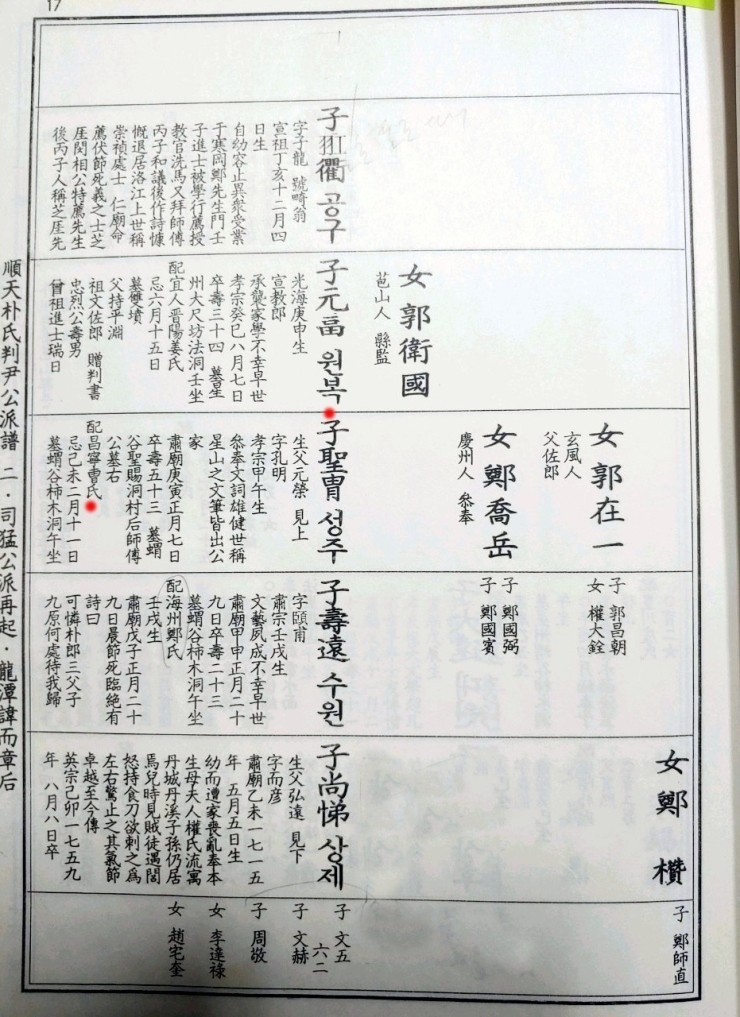 17
子羾衢 공구
字子龍 號畸翁
宣祖丁亥十二月四
日生
自幼容止異衆受業
于寒岡鄭先生門壬
子進士被學行薦授
教官洗馬又拜師傅
丙子和議後作詩慷
慨退居洛江上世稱
崇禎處士 仁廟命
薦伏節死義之士芝
厓閔相公特薦先生
後丙子人稱芝厓先
女 郭衛國
苞山人 縣監
子元畐 원복
光海庚申生
宣教郎
承襲家學不幸早世
孝宗癸巳八月七日
卒壽三十四 墓星
州大尺坊法洞壬坐
配宜人晋陽姜氏
忌六月十五日
墓雙墳
父持平淵
祖文佐郎 贈判書
忠烈公壽男
曾祖進士瑞日
女 郭在一
玄風人
父佐郎
女 鄭喬岳
慶州人 叅奉
子聖冑 성주
生父元榮 見上
字孔明
孝宗甲午生
叅奉文詞雄健世稱
星山之文筆皆出公
家
肅廟庚寅正月七日
卒壽五十三 墓蝟
谷聖賜洞村后師傅
公墓右
配昌寧曺氏
忌己未二月十一日
墓蝟谷柿木洞午坐
子 郭昌朝
女 權大銓
子 鄭國弼
子 鄭國賓
子壽遠 수원
字頤甫
肅宗壬戌生
文藝夙成不幸早世
肅廟甲申正月二十
九日卒壽二十三
墓蝟谷柿木洞午坐
配海州鄭氏
壬戌生
肅廟戊子正月二十
九日晨節死臨絶有
詩曰
可憐朴郎三父子
九原何處待我歸
女 鄭 欑
子尚悌 상제
生父弘遠 見下
字而彦
肅廟乙未一七一五
年 五月五日生
幼而遭家喪亂奉本
生母夫人權氏流寓
丹城丹溪子孫仍居
焉兒時見賊徒遇閤
怒持食刀欲刺之爲
左右驚止之其氣節
卓越至今傳
英宗己卯一七五九
年 八月八日卒
子 鄭師直
子 文五
六二
子 文赫
子 周敬
女 李達祿
女 趙宅奎
順天朴氏判尹公派譜 二·司猛公派再起·龍潭諱而章后